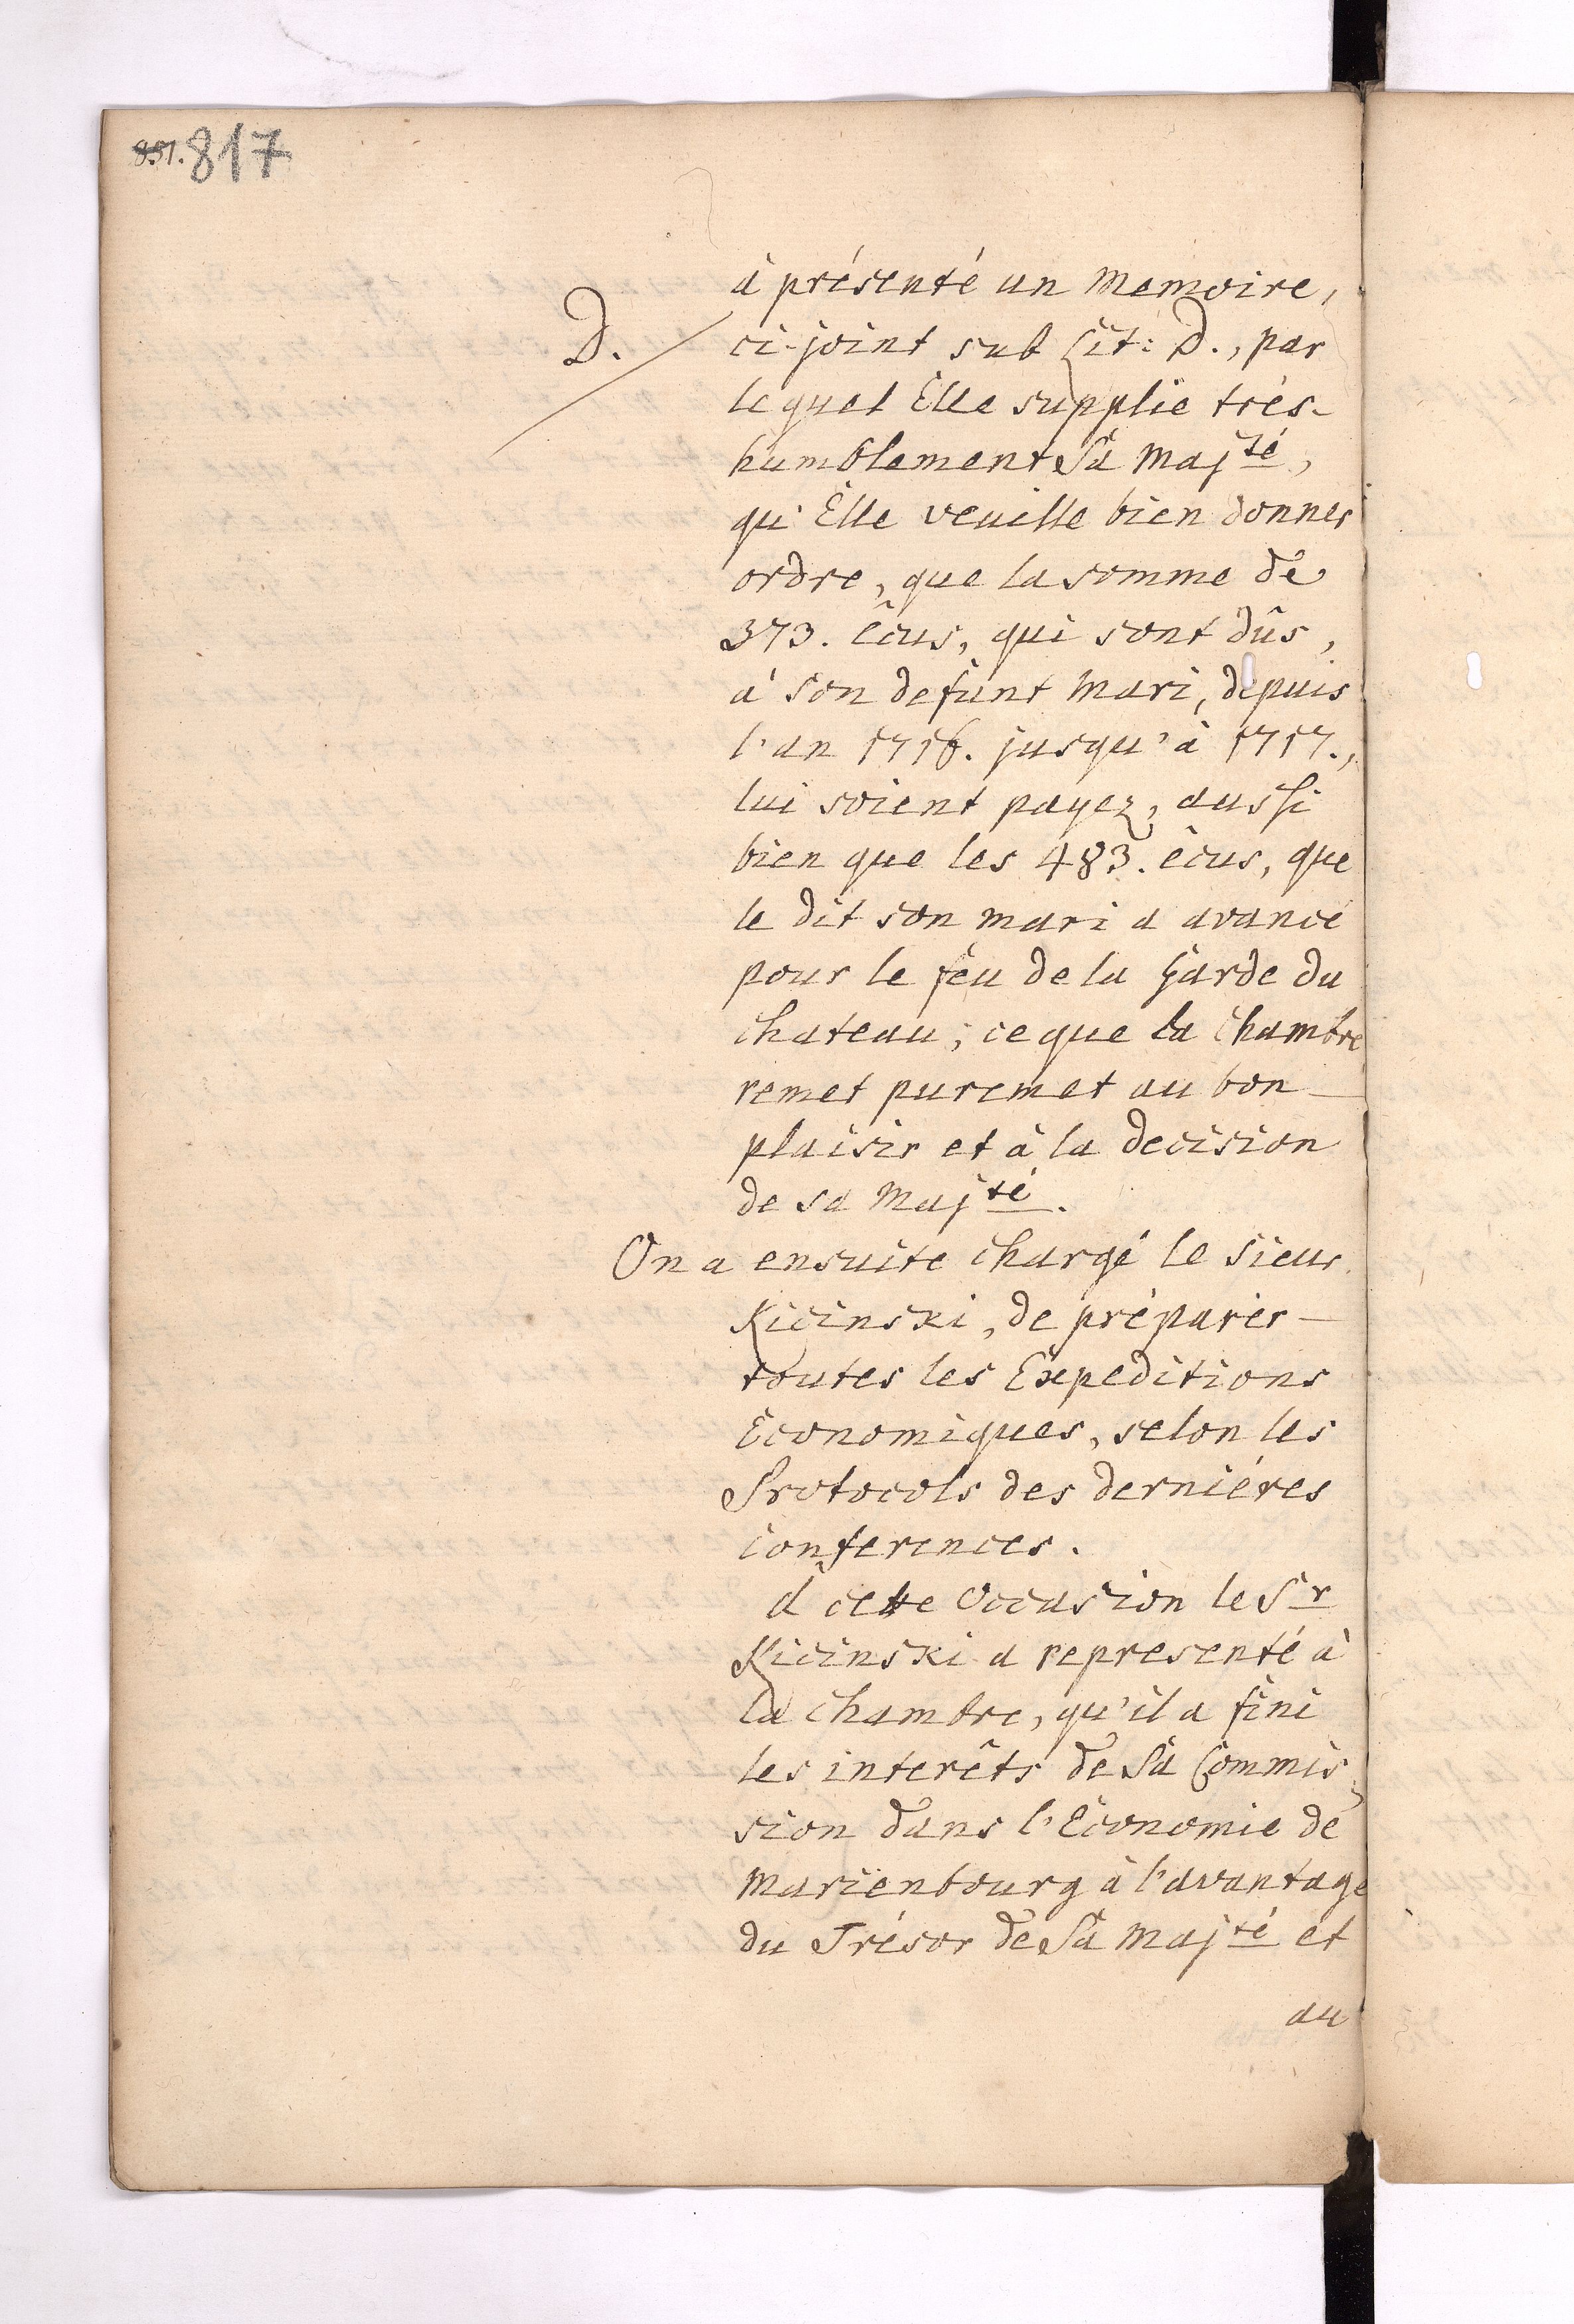 851. 817
à présenté un Memoire,
D. ci-joint sub Lit: D., par
lequel Elle supplie trés-
humblement Sa Maj.té,
qu'Elle veuille bien donner
ordre, que la somme de
373. êcus, qui sont dûs,
à son defunt Mari, depuis
l'an 1716. jusqu'à 1717.,
lui soient payez, aussi
bien que les 483. êcus, que
le dit son mari a avancé
pour le feu de la Garde du
chateau; ce que la Chambre
remet puremet au bon
plaisir et à la decision
de sa Maj.té.
On a ensuite chargé le Sieur
Kicinski, de préparer
toutes les Expeditions
Economiques, selon les
Protocols des derniéres
conferences.
à cette Occasion le Sr
Kicinski a representé à
la Chambre, qu'il a fini
les interêts de Sa Commis-
sion dans l'Economie de
Marienbourg à l'avantage
du Trésor de Sa Maj.té et
au